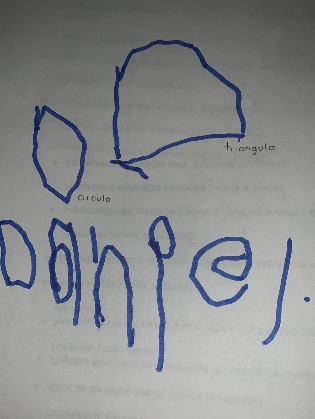 triangulo
circulo
Daniel.